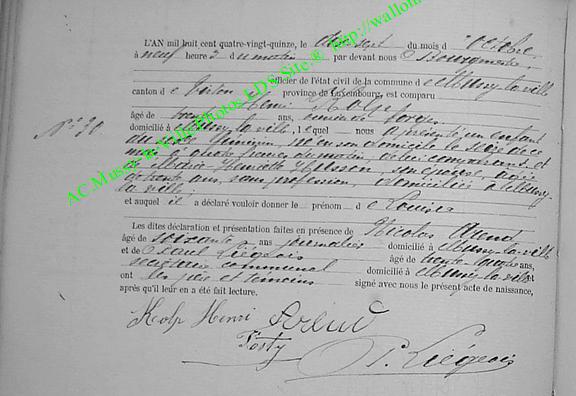 L'AN mil huit cent quatre-vingt-quinze, le dix sept du mois d'octobre
à neuf heures du matin par devant nous Bourgmestre,
officier de l'état civil de la commune de Mussy-la-ville
canton de Virton province de Luxembourg, est comparu
Henri Kolp
âgé de trente ans,
N° 30
domicilié à Mussy-la-ville, lequel nous a présenté un enfant
du sexe féminin, né en son domicile le seize de ce
mois à quatre heures du matin, de lui comparant et
de Marie Henriette son épouse, âgée
de trente ans, sans profession, domiciliée à Mussy-
la-ville;
et auquel il a déclaré vouloir donner le prénom de Louise
Les dites déclaration et présentation faites en présence de Nicolas
âgé de soixante ans journalier domicilié à Mussy-la-ville
et de Paul Liégeois âgé de trente ans,
secrétaire communal domicilié à Mussy-la-ville
ont les père et témoins signé avec nous le présent acte de naissance,
après qu'il leur en a été fait lecture.
Kolp Henri
P. Liégeois
AC.Musson-la-Ville Photos EDS Site.® http://wallon